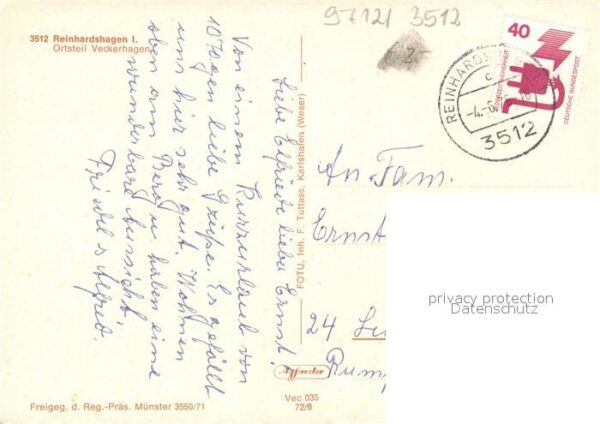 97121 3512
3512 Reinhardshagen I.
Ortsteil Veckerhagen
Liebe Elfriede lieber Ernst!
Von einem Kurzurlaub von
10 Tagen liebe Grüße. Es gefällt
uns hier sehr gut. Wohnen
oben am Berg u. haben eine
wunderbare Aussicht.
Friedel u. Alfred.
FOTU, Inh. F. Tuttass, Karlshafen (Weser)
40
DEUTSCHE BUNDESPOST
REINHARDS
c
3512
An Fam.
Ernst
24
privacy protection
Datenschutz
Vec 035
72/6
Freigeg. d. Reg.-Präs. Münster 3550/71